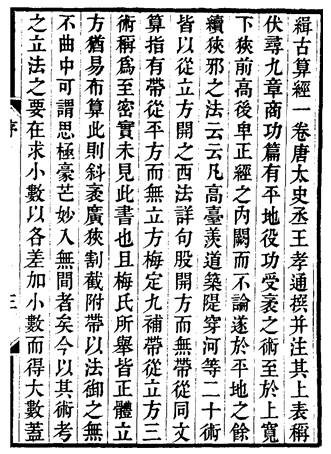 緝古算經一卷唐太史丞王孝通撰并注其上表稱
伏尋九章商功篇有平地役功受袤之術至於上寬
下狹前高後卑正經之內闕而不論遂於平地之餘
續狹邪之法云云凡高臺羨道築隄穿河等二十術
皆以從立方開之西法詳句股開方而無帶從同文
算指有帶從平方而無立方梅定九補帶從立方三
術稱爲至密實未見此書也且梅氏所舉皆正體立
方猶易布算此則斜袤廣狹割截附帶以法御之無
不曲中可謂思極豪芒妙入無間者矣今以其術考
之立法之要在求小數以各差加小數而得大數蓋
序
三